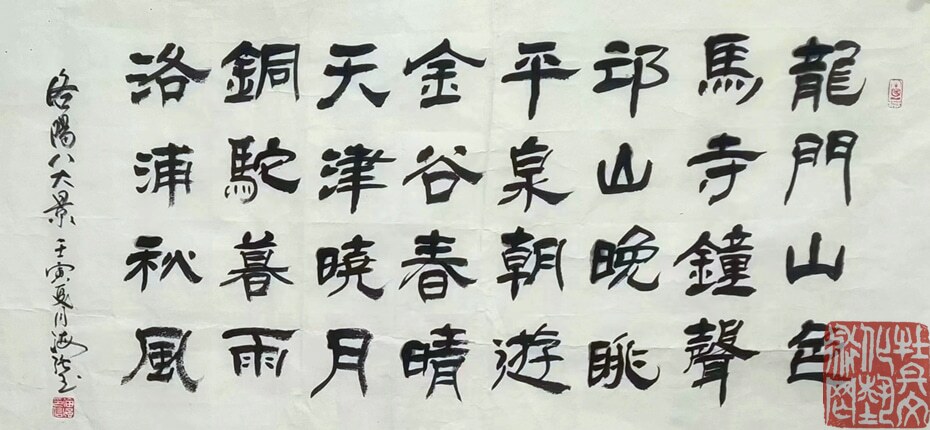 龍門山色
馬寺鐘聲
邙山晚眺
平泉朝遊
金谷春晴
天津曉月
銅駝暮雨
洛浦秋風
洛陽八大景 壬寅夏月
牡丹文化艺术网